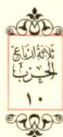 ثلاثة أرباع
الحزب
١٠